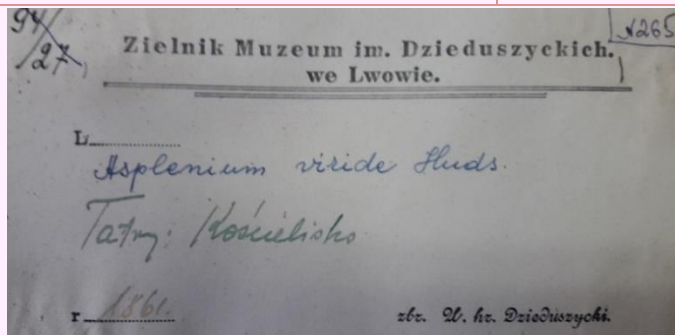 94/27
№265
Zielnik Muzeum im. Dzieduszyckich.
we Lwowie.
L.
Asplenium viride Huds.
Tatry: Kościelisko
r 1861.
zbr. W. hr. Dzieduszycki.